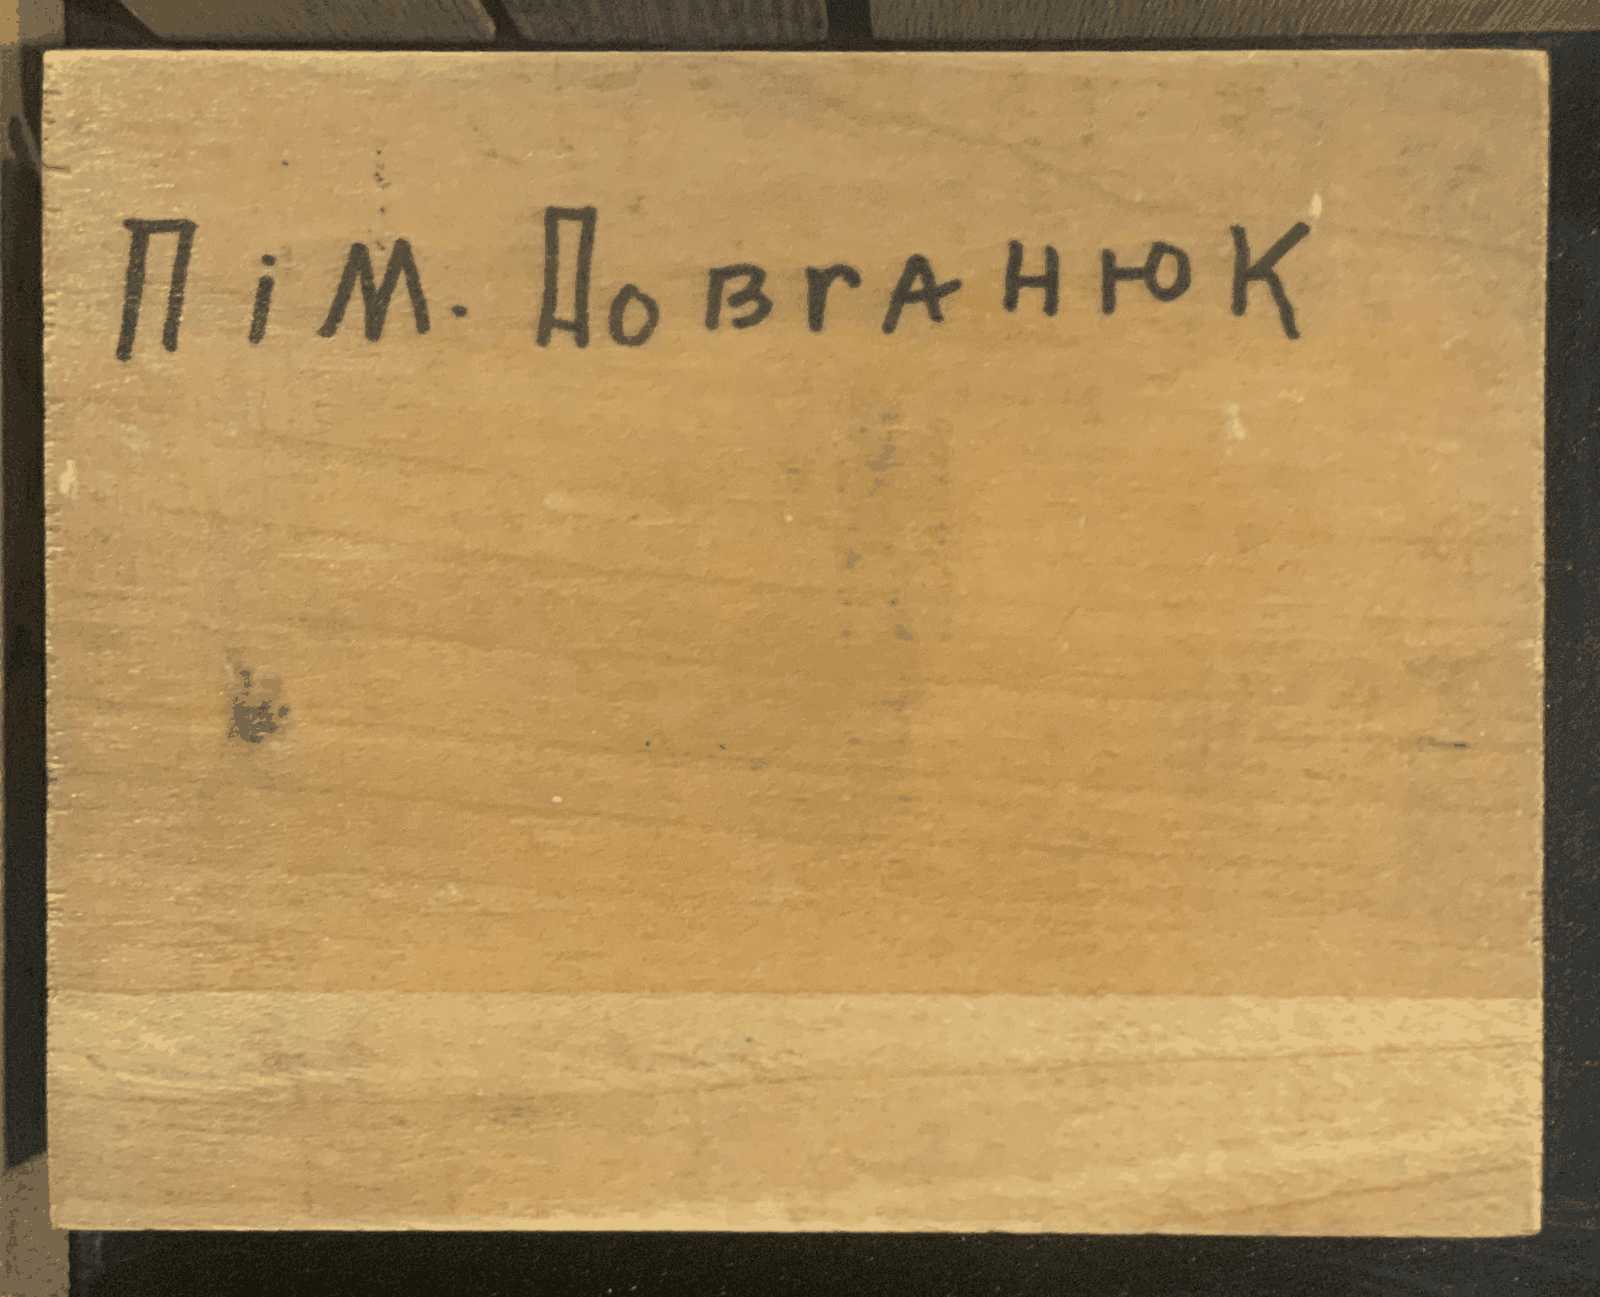 Пім. Довганюк